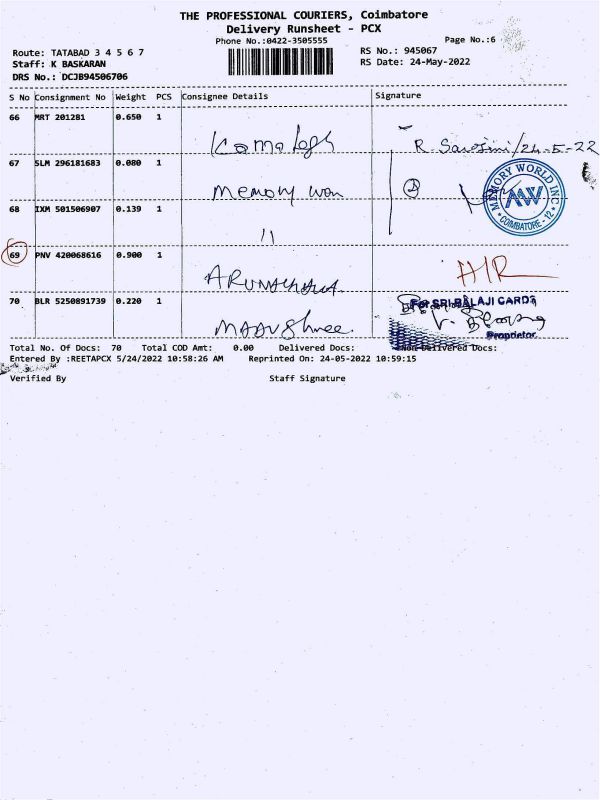 THE PROFESSIONAL COURIERS, Coimbatore
Delivery Runsheet - PCX
Phone No.:0422-3505555
Page No.:6
Route: TATABAD 3 4 5 6 7
RS No.: 945067
Staff: K BASKARAN
RS Date: 24-May-2022
DRS No.: DCJB94506706
S No Consignment No Weight PCS Consignee Details Signature
66 MRT 201281 0.650 1
R Sarojini/24-5-22
67 SLM 296181683 0.080 1
memory
MEMORY WORLD INC
MW
COIMBATORE - 12
68 IXM 501506907 0.139 1
11
69 PNV 420068616 0.900 1
70 BLR 5250891739 0.220 1
For SRI BALAJI CARDS
Proprietor
Total No. Of Docs: 70 Total COD Amt: 0.00 Delivered Docs: Non-Delivered Docs:
Entered By :REETAPCX 5/24/2022 10:58:26 AM Reprinted On: 24-05-2022 10:59:15
Verified By Staff Signature